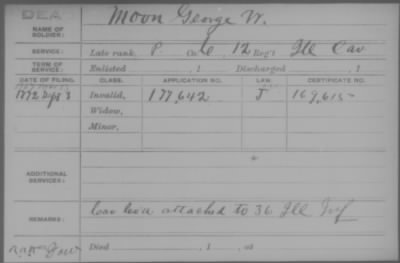 DEAD
NAME OF SOLDIER: Moon George W.
SERVICE: Late rank, P Co. C, 12 Reg't Ill Cav
TERM OF SERVICE: Enlisted , 1 Discharged , 1
DATE OF FILING. CLASS. APPLICATION NO. LAW. CERTIFICATE NO.
1872 3 Invalid, 177,642 J 169,615
Widow,
Minor,
ADDITIONAL SERVICES:
REMARKS: attached to 36 Ill Inf
Died , 1 , at